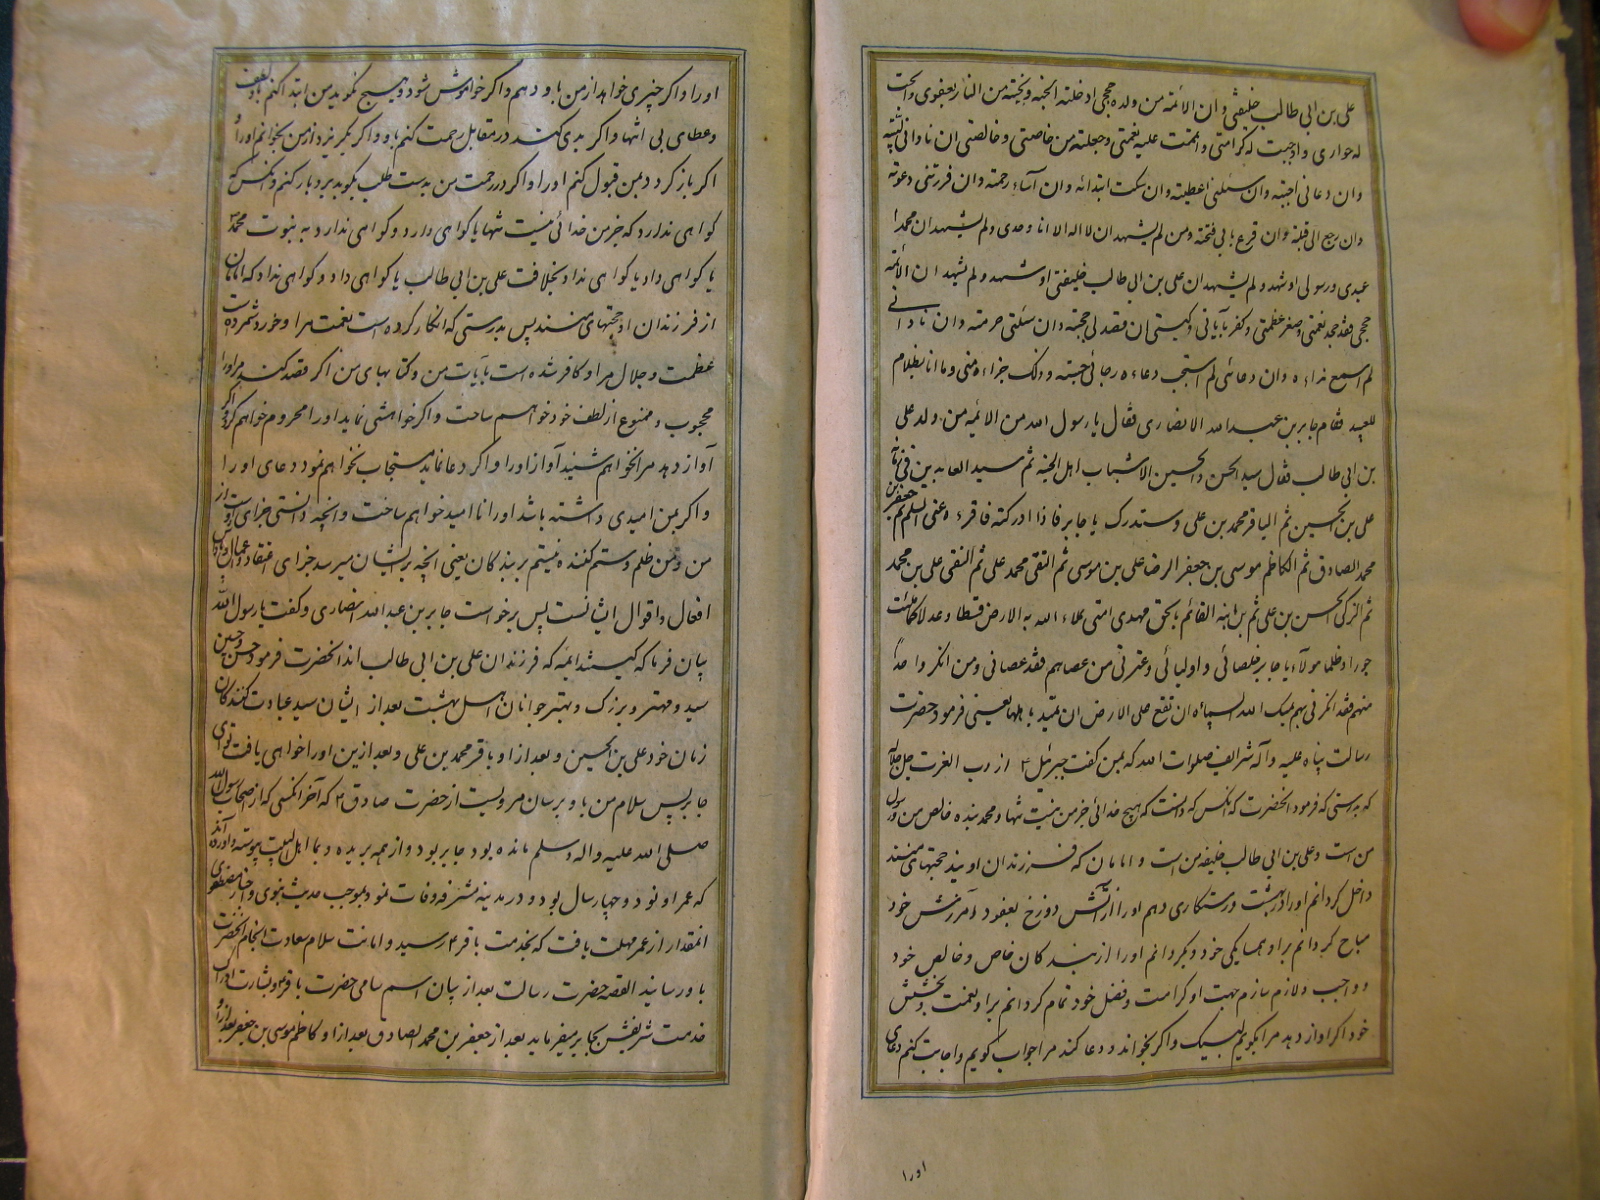 علی بن ابی طالب خلیفتی وان الائمه من ولده حججی ادخلته الجنه ونجیته من النار بعفوی وابحت
له جواری واوجبت له کرامتی واتممت علیه نعمتی وجعلته من خاصتی وخالصتی ان نادانی لبیته
وان دعانی اجبته وان سئلنی اعطیته وان سکت ابتدائه وان اساء رحمته وان فر منی دعوته
وان رجع الی قبلته وان قرع بابی فتحته ومن لم یشهد ان لا اله الا انا وحدی ولم یشهد ان محمدا
عبدی ورسولی او شهد ولم یشهد ان علی بن ابی طالب خلیفتی او شهد ولم یشهد ان الائمه
حججی فقد جحد نعمتی وصغر عظمتی وکفر بآیاتی وکتبی ان قصدنی حجبته وان سئلنی حرمته وان نادانی
لم اسمع نداءه وان دعانی لم استجب دعاءه رجانی خیبته وذلک جزاءه منی وما انا بظلام
للعبید فقام جابر بن عبد الله الانصاری فقال یا رسول الله من الائمه من ولد علی
بن ابی طالب فقال سید الحسن والحسین الاشباب اهل الجنه ثم سید العابدین فی زمانه
علی بن الحسین ثم الباقر محمد بن علی وستدرک یا جابر فاذا ادرکته فاقرءه عنی السلم ثم جعفر بن
محمد الصادق ثم الکاظم موسی بن جعفر الرضا علی بن موسی ثم التقی محمد علی ثم النقی علی بن محمد
ثم الزکی الحسن بن علی ثم بن ابنه القائم بالحق مهدی امتی یملاء الله به الارض قسطا وعدلا کما ملئت
جورا وظلما هولاء یا جابر خلصائی واولیائی وعترتی من عصاهم فقد عصانی ومن انکر واحدا
منهم فقد انکرنی بهم یمسک الله السماء ان تقع علی الارض ان تمید باهلها یعنی فرمود حضرت
رسالت پناه علیه وآله شرایف صلوات الله که بمن گفت جبرئیل ع از رب العزت جل جلاله
که بدرستی که فرمود انحضرت که هرکس که دانست که هیچ خدائی جز من نیست تنها ومحمد بنده خالص من ورسول
من است وعلی بن ابی طالب خلیفه من است وامامان که فرزندان اویند حجتهای منند
داخل کردانم اورا در بهشت ورستکاری دهم اورا از آتش دوزخ بعفو وآمرزش خود
مباح کردانم براو همسایکی خود وبکردانم اورا از بندکان خاص وخالص خود
وواجب ولازم سازم جهت او کرامت وفضل خود تمام کردانم براو نعمت وبخشش
خود اکر اواز دهد مرا بکویم لبیک واکر بخواند ودعا کند مرا جواب کویم واجابت کنم دعای
اورا
اورا واکر چیزی خواهد از من باو دهم واکر خواموش شود وهیچ نکوید من ابتدا کنم باو بلطف
وعطای بی انتها واکر بدی کند در مقابل رحمت کنم باو واکر بکریزد از من بخوانم اورا و
اکر باز کردد بمن قبول کنم اورا واکر در رحمت من بدست طلب بکوبد برو باز کنم وانکس که
کواهی ندارد که جز من خدائی نیست تنها یا کواهی دارد وکواهی ندارد به نبوت محمد
یا کواهی داد یا کواهی نداد بخلافت علی بن ابی طالب یا کواهی داد وکواهی نداد که امامان
از فرزندان او حجتهای منند پس بدرستی که انکار کرده است نعمت مرا وخورد شمرده است
عظمت وجلال مرا وکافر شده است بآیات من وکتابهای من اکر قصد کند مرا اورا
محجوب وممنوع از لطف خود خواهم ساخت واکر خواهشی نماید اورا محروم خواهم کرد واکر
آواز دهد مرا نخواهم شنید آواز اورا واکر دعا نماید مستجاب نخواهم نمود دعای اورا
واکر بمن امیدی داشته باشد اورا نا امید خواهم ساخت وانچه دانستی جزای اوست از
من ومن ظلم وستم کننده نیستم بر بندکان یعنی انچه برایشان میرسد جزای اعتقاد واعمال
افعال واقوال ایشانست پس برخواست جابر بن عبد الله انصاری وکفت یا رسول الله
بیان فرما که کیستند ائمه که فرزندان علی بن ابی طالب اند انحضرت فرمود حسن وحسین
سید ومهتر وبزرک وبهتر جوانان اهل بهشت بعد از ایشان سید عبادت کنندکان
زمان خود علی بن الحسین وبعد از او باقر محمد بن علی وبعد ازین اورا خواهی یافت تو ای
جابر پس سلام من باو برسان مرویست از حضرت صادق ع که آخر کسی که از صحاب رسول الله
صلی الله علیه واله وسلم مانده بود جابر بود واز همه بریده وبما اهل البیت پیوسته واورده اند
که عمر او نود وچهار سال بود ودر مدینه مشرفه وفات نمود بموجب حدیث نبوی واخبار مصطفوی
انمقدار از عمر مهلت یافت که بخدمت باقر ع رسید وامانت سلام سعادت انجام انحضرت
باو رسانید القصه حضرت رسالت بعد از بیان اسم سامی حضرت باقر ع وبشارت ادراک
خدمت شریفش بجابر میفرماید بعد از جعفر بن محمد الصادق بعد از او کاظم موسی بن جعفر بعد از او